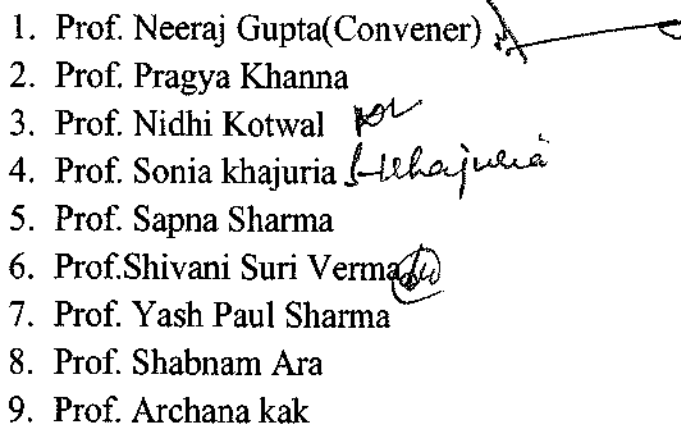 1. Prof. Neeraj Gupta(Convener)
2. Prof. Pragya Khanna
3. Prof. Nidhi Kotwal
4. Prof. Sonia khajuria SKhajuria
5. Prof. Sapna Sharma
6. Prof.Shivani Suri Verma
7. Prof. Yash Paul Sharma
8. Prof. Shabnam Ara
9. Prof. Archana kak